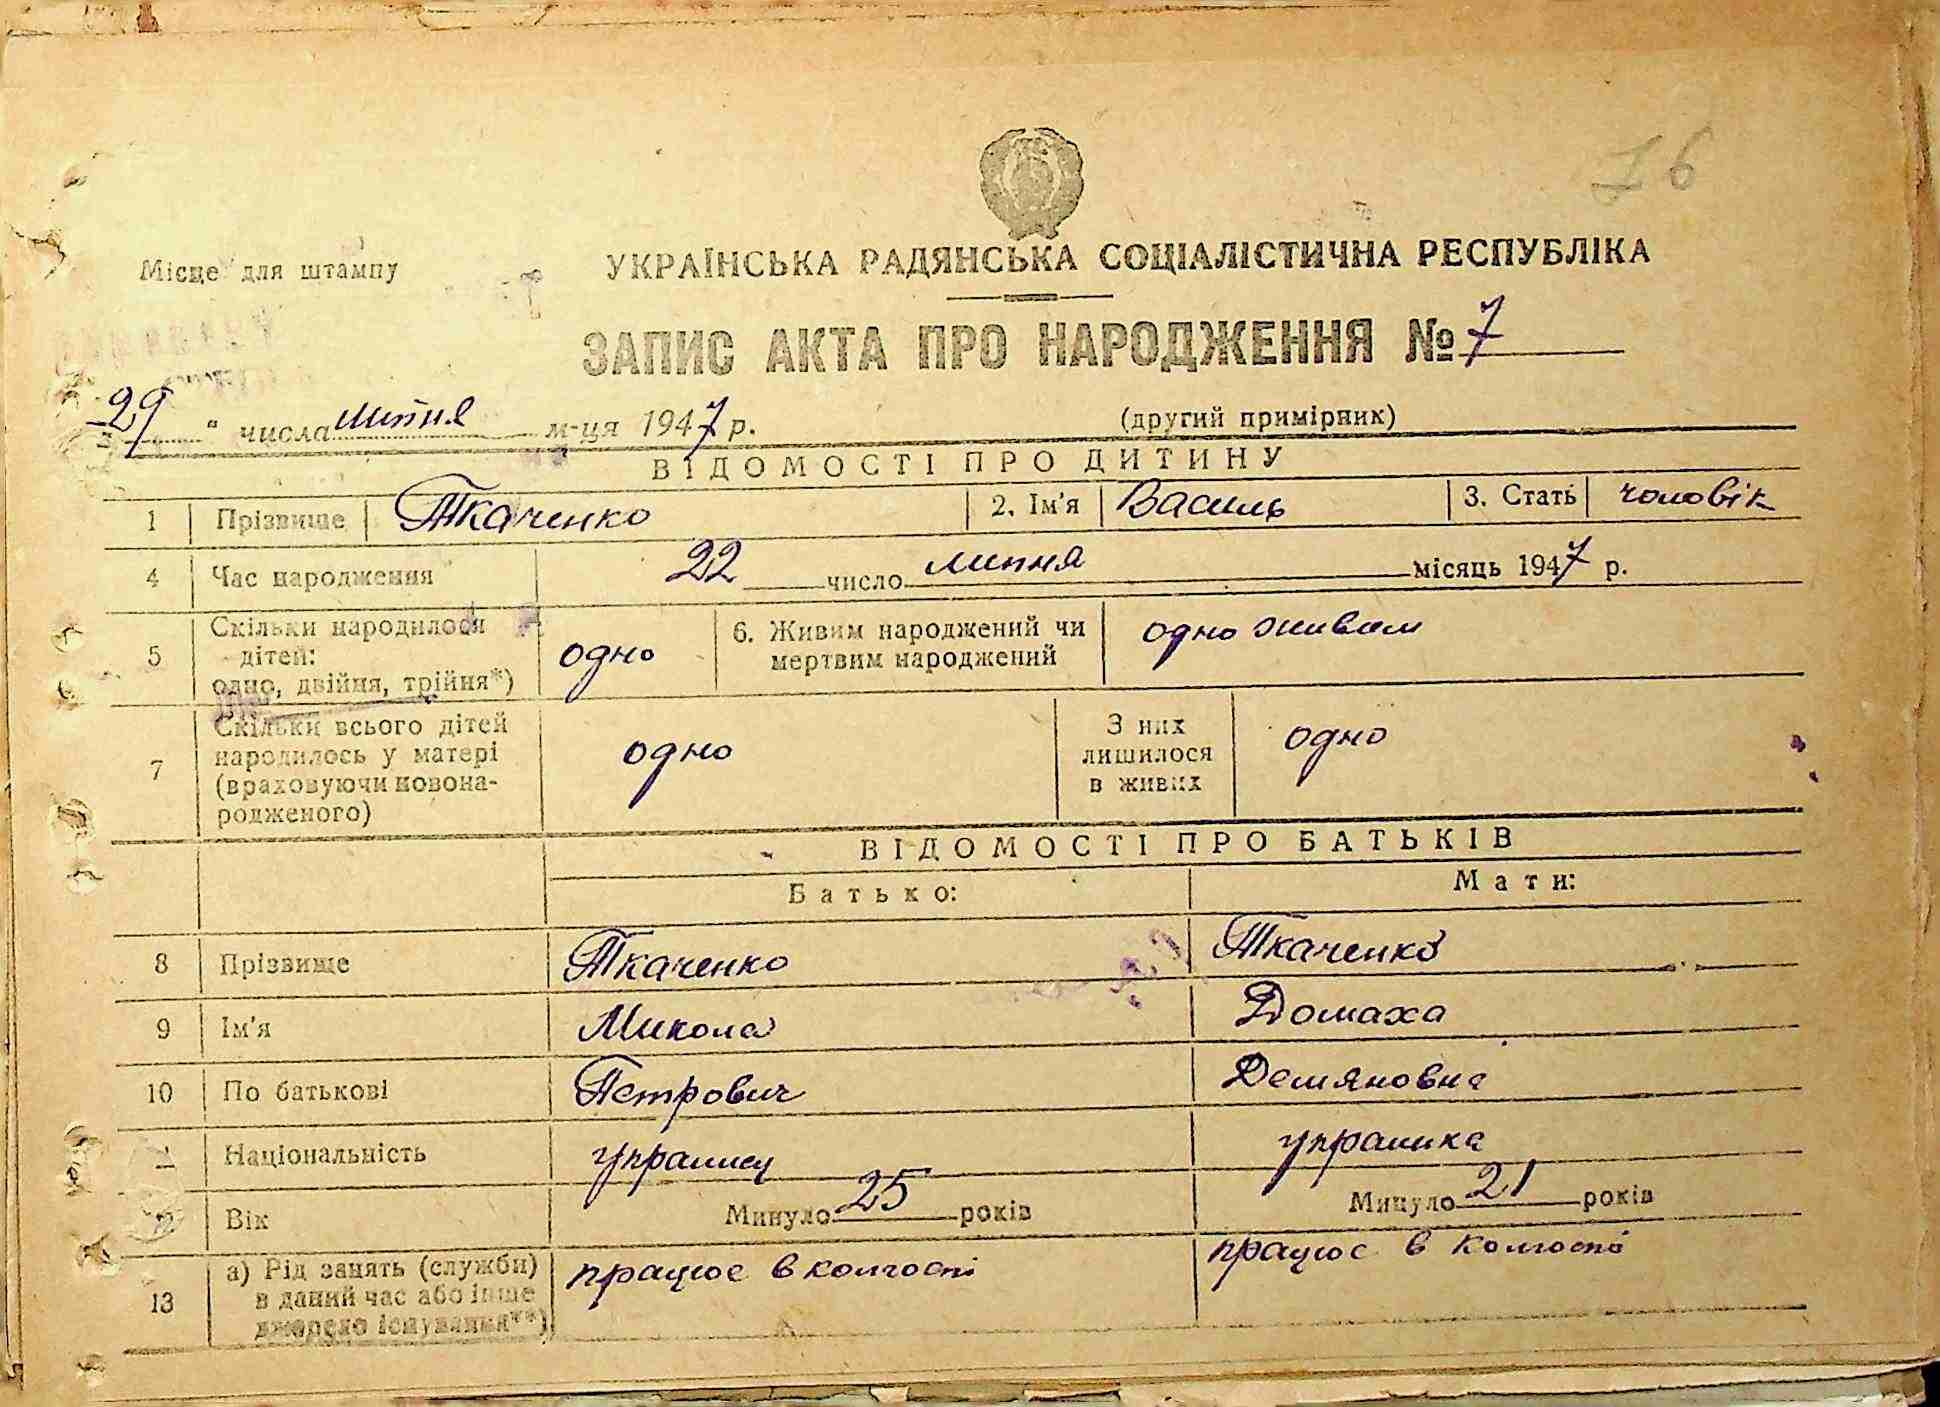 76
Місце для штампу
УКРАЇНСЬКА РАДЯНСЬКА СОЦІАЛІСТИЧНА РЕСПУБЛІКА
ЗАПИС АКТА ПРО НАРОДЖЕННЯ № 7
29 " числа липня м-ця 1947 р. (другий примірник)
ВІДОМОСТІ ПРО ДИТИНУ
1 Прізвище Ткаченко 2. Ім'я Василь 3. Стать чоловік
4 Час народження 22 число липня місяць 1947 р.
5 Скільки народилося дітей: одно, двійня, трійня*) одно 6. Живим народжений чи мертвим народжений одно живим
7 Скільки всього дітей народилось у матері (враховуючи новонародженого) одно З них лишилося в живих одно
ВІДОМОСТІ ПРО БАТЬКІВ
Батько: Мати:
8 Прізвище Ткаченко Ткаченко
9 Ім'я Микола Домаха
10 По батькові Петрович Демяновна
Національність українец українка
12 Вік Минуло 25 років Минуло 21 років
13 а) Рід занять (служби) в даний час або інше джерело існування**) працює в колгоспі працює в колгоспі